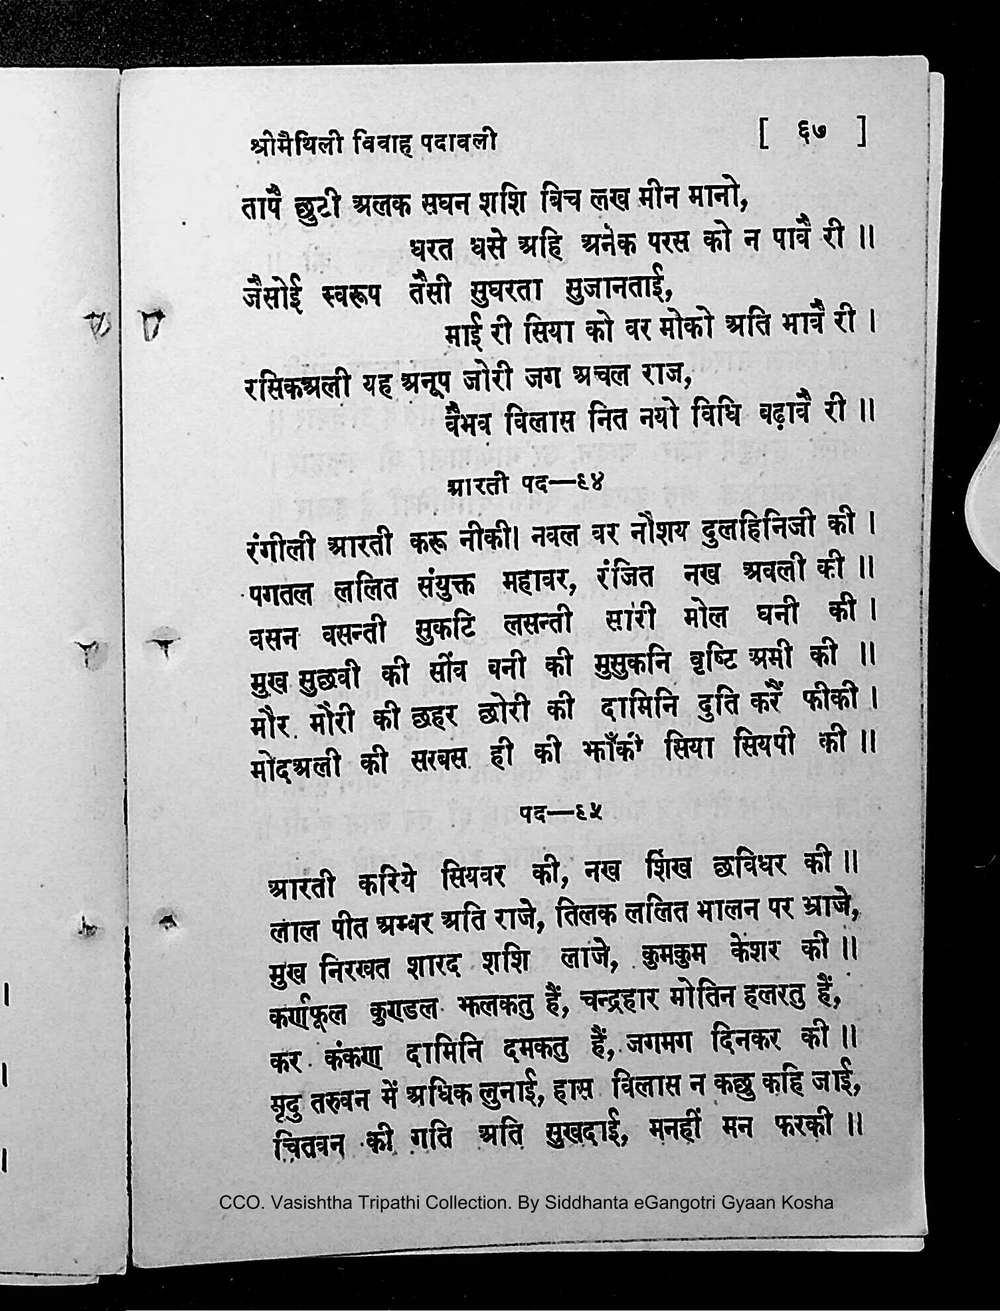 श्रीमैथिली विवाह पदावली [ ६७ ]
तापै छुटी अलक सघन शशि बिच लख मीन मानो,
धरत धसे अहि अनेक परस को न पावै री ॥
जैसोई स्वरूप तैसी सुघरता सुजानताई,
माई री सिया को वर मोको अति भावै री ।
रसिकअली यह अनूप जोरी जग अचल राज,
वैभव विलास नित नयो विधि बढ़ावै री ॥
आरती पद—६४
रंगीली आरती करू नीकी। नवल वर नौशय दुलहिनिजी की ।
पगतल ललित संयुक्त महावर, रंजित नख अवली की ॥
वसन वसन्ती सुकटि लसन्ती सारी मोल घनी की ।
मुख सुछवी की सींव बनी की मुसुकनि वृष्टि अमी की ॥
मौर मौरी की छहर छोरी की दामिनि दुति करैं फीकी ।
मोदअली की सरबस ही की झाँकी सिया सियपी की ॥
पद—६५
आरती करिये सियवर की, नख शिख छविधर की ॥
लाल पीत अम्बर अति राजे, तिलक ललित भालन पर भ्राजे,
मुख निरखत शारद शशि लाजे, कुमकुम केशर की ॥
कर्णफूल कुण्डल झलकतु हैं, चन्द्रहार मोतिन हलरतु हैं,
कर कंकण दामिनि दमकतु हैं, जगमग दिनकर की ॥
मृदु तरुवन में अधिक लुनाई, हास विलास न कछु कहि जाई,
चितवन की गति अति सुखदाई, मनहीं मन फरकी ॥
CCO. Vasishtha Tripathi Collection. By Siddhanta eGangotri Gyaan Kosha